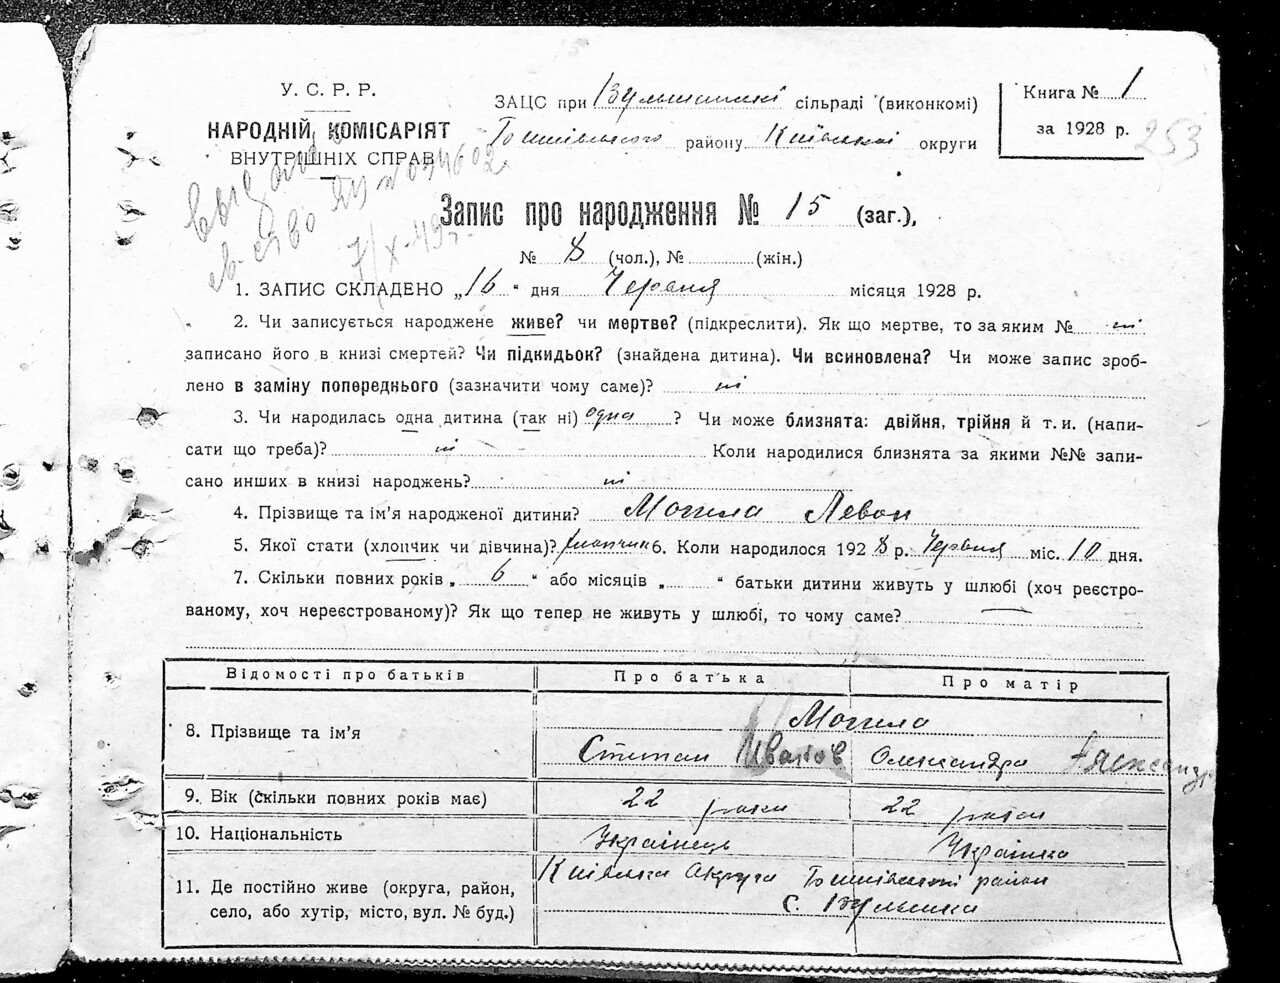 У. С. Р. Р.
НАРОДНІЙ КОМІСАРІЯТ
ВНУТРІШНІХ СПРАВ
ЗАЦС при сільраді (виконкомі)
району Київської округи
Книга № 1
за 1928 р.
253
7/X-49 г.
Запис про народження № 15 (заг.),
№ 8 (чол.), № (жін.)
1. ЗАПИС СКЛАДЕНО „16“ дня Червня місяця 1928 р.
2. Чи записується народжене живе? чи мертве? (підкреслити). Як що мертве, то за яким № ні
записано його в книзі смертей? Чи підкидьок? (знайдена дитина). Чи всиновлена? Чи може запис зроб-
лено в заміну попереднього (зазначити чому саме)? ні
3. Чи народилась одна дитина (так ні) одна ? Чи може близнята: двійня, трійня й т. и. (напи-
сати що треба)? ні Коли народилися близнята за якими №№ запи-
сано инших в книзі народжень? ні
4. Прізвище та ім'я народженої дитини? Могила Левон
5. Якої стати (хлопчик чи дівчина)? хлопчик 6. Коли народилося 1928 р. Червня міс. 10 дня.
7. Скільки повних років „ 6 “ або місяців „ “ батьки дитини живуть у шлюбі (хоч реєстро-
ваному, хоч нереєстрованому)? Як що тепер не живуть у шлюбі, то чому саме? —
Відомості про батьків Про батька Про матір
8. Прізвище та ім'я Могила
Степан Иванов Олександра Александр.
9. Вік (скільки повних років має) 22 роки 22 роки
10. Національність Українець Українка
11. Де постійно живе (округа, район, Київська Округа район
село, або хутір, місто, вул. № буд.) с.